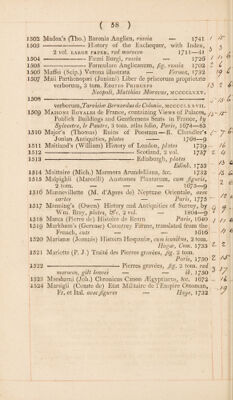 ( 58 )
1502 Madox's (Tho.) Baronia Anglica, russia - 1741
1503 ——— History of the Exchequer, with Index,
2 vol. LARGE PAPER, red morocco 1711—41
1504 ——— Firma Burgi, russia - 1726
1505 ——— Formulare Anglicanum, fig. russia 1702
1506 Maffei (Scip.) Verona illustrata - Verona, 1732
1507 Maii Parthenopei (Juniani) Liber de priscorum proprietate
verborum, 2 tom. EDITIO PRINCEPS
Neapoli, Matthias Moravus, MCCCCLXXV.
1508 ———
verborum, Tarvisino Bernardus de Colonia, MCCCCLXXVII.
1509 MAISONS ROYALES de France, containing Views of Palaces,
Publick Buildings and Gentlemens Seats in France, by
Sylvestre, le Pautre, 2 tom. atlas folio, Paris, 1674—82
1510 Major's (Thomas) Ruins of Poestum—R. Chandler's
Ionian Antiquities, plates 1768—9
1511 Maitland's (William) History of London, plates 1739
1512 ——— Scotland, 2 vol. 1757
1513 ——— Edinburgh, plates
Edinb. 1753
1514 Maittaire (Mich.) Marmora Arundelliana, &c. 1732
1515 Malpighii (Marcelli) Anatomes Plantarum, cum figuris,
2 tom. 1675—9
1516 Mannevillette (M. d'Apres de) Neptune Orientale, avec
cartes - Paris, 1775
1517 Manning's (Owen) History and Antiquities of Surrey, by
Wm. Bray, plates, &c. 2 vol. 1804—9
1518 Marca (Pierre de) Histoire de Bearn Paris, 1640
1519 Markham's (Gervase) Countrey Farme, translated from the
French, cuts - 1616
1520 Marianæ (Joannis) Historia Hispaniæ, cum iconibus, 2 tom.
Hagæ, Com. 1733
1521 Mariette (P. J.) Traité des Pierres gravées, fig. 2 tom.
Paris, 1750
1522 ——— Pierres gravées, fig. 2 tom. red
morocco, gilt leaves - ib. 1750
1523 Marshami (Joh.) Chronicus Canon Ægyptiacus, &c. 1672
1524 Marsigli (Comte de) Etat Militaire de l'Empire Ottoman,
Fr. et Ital. avec figures - Haye, 1732